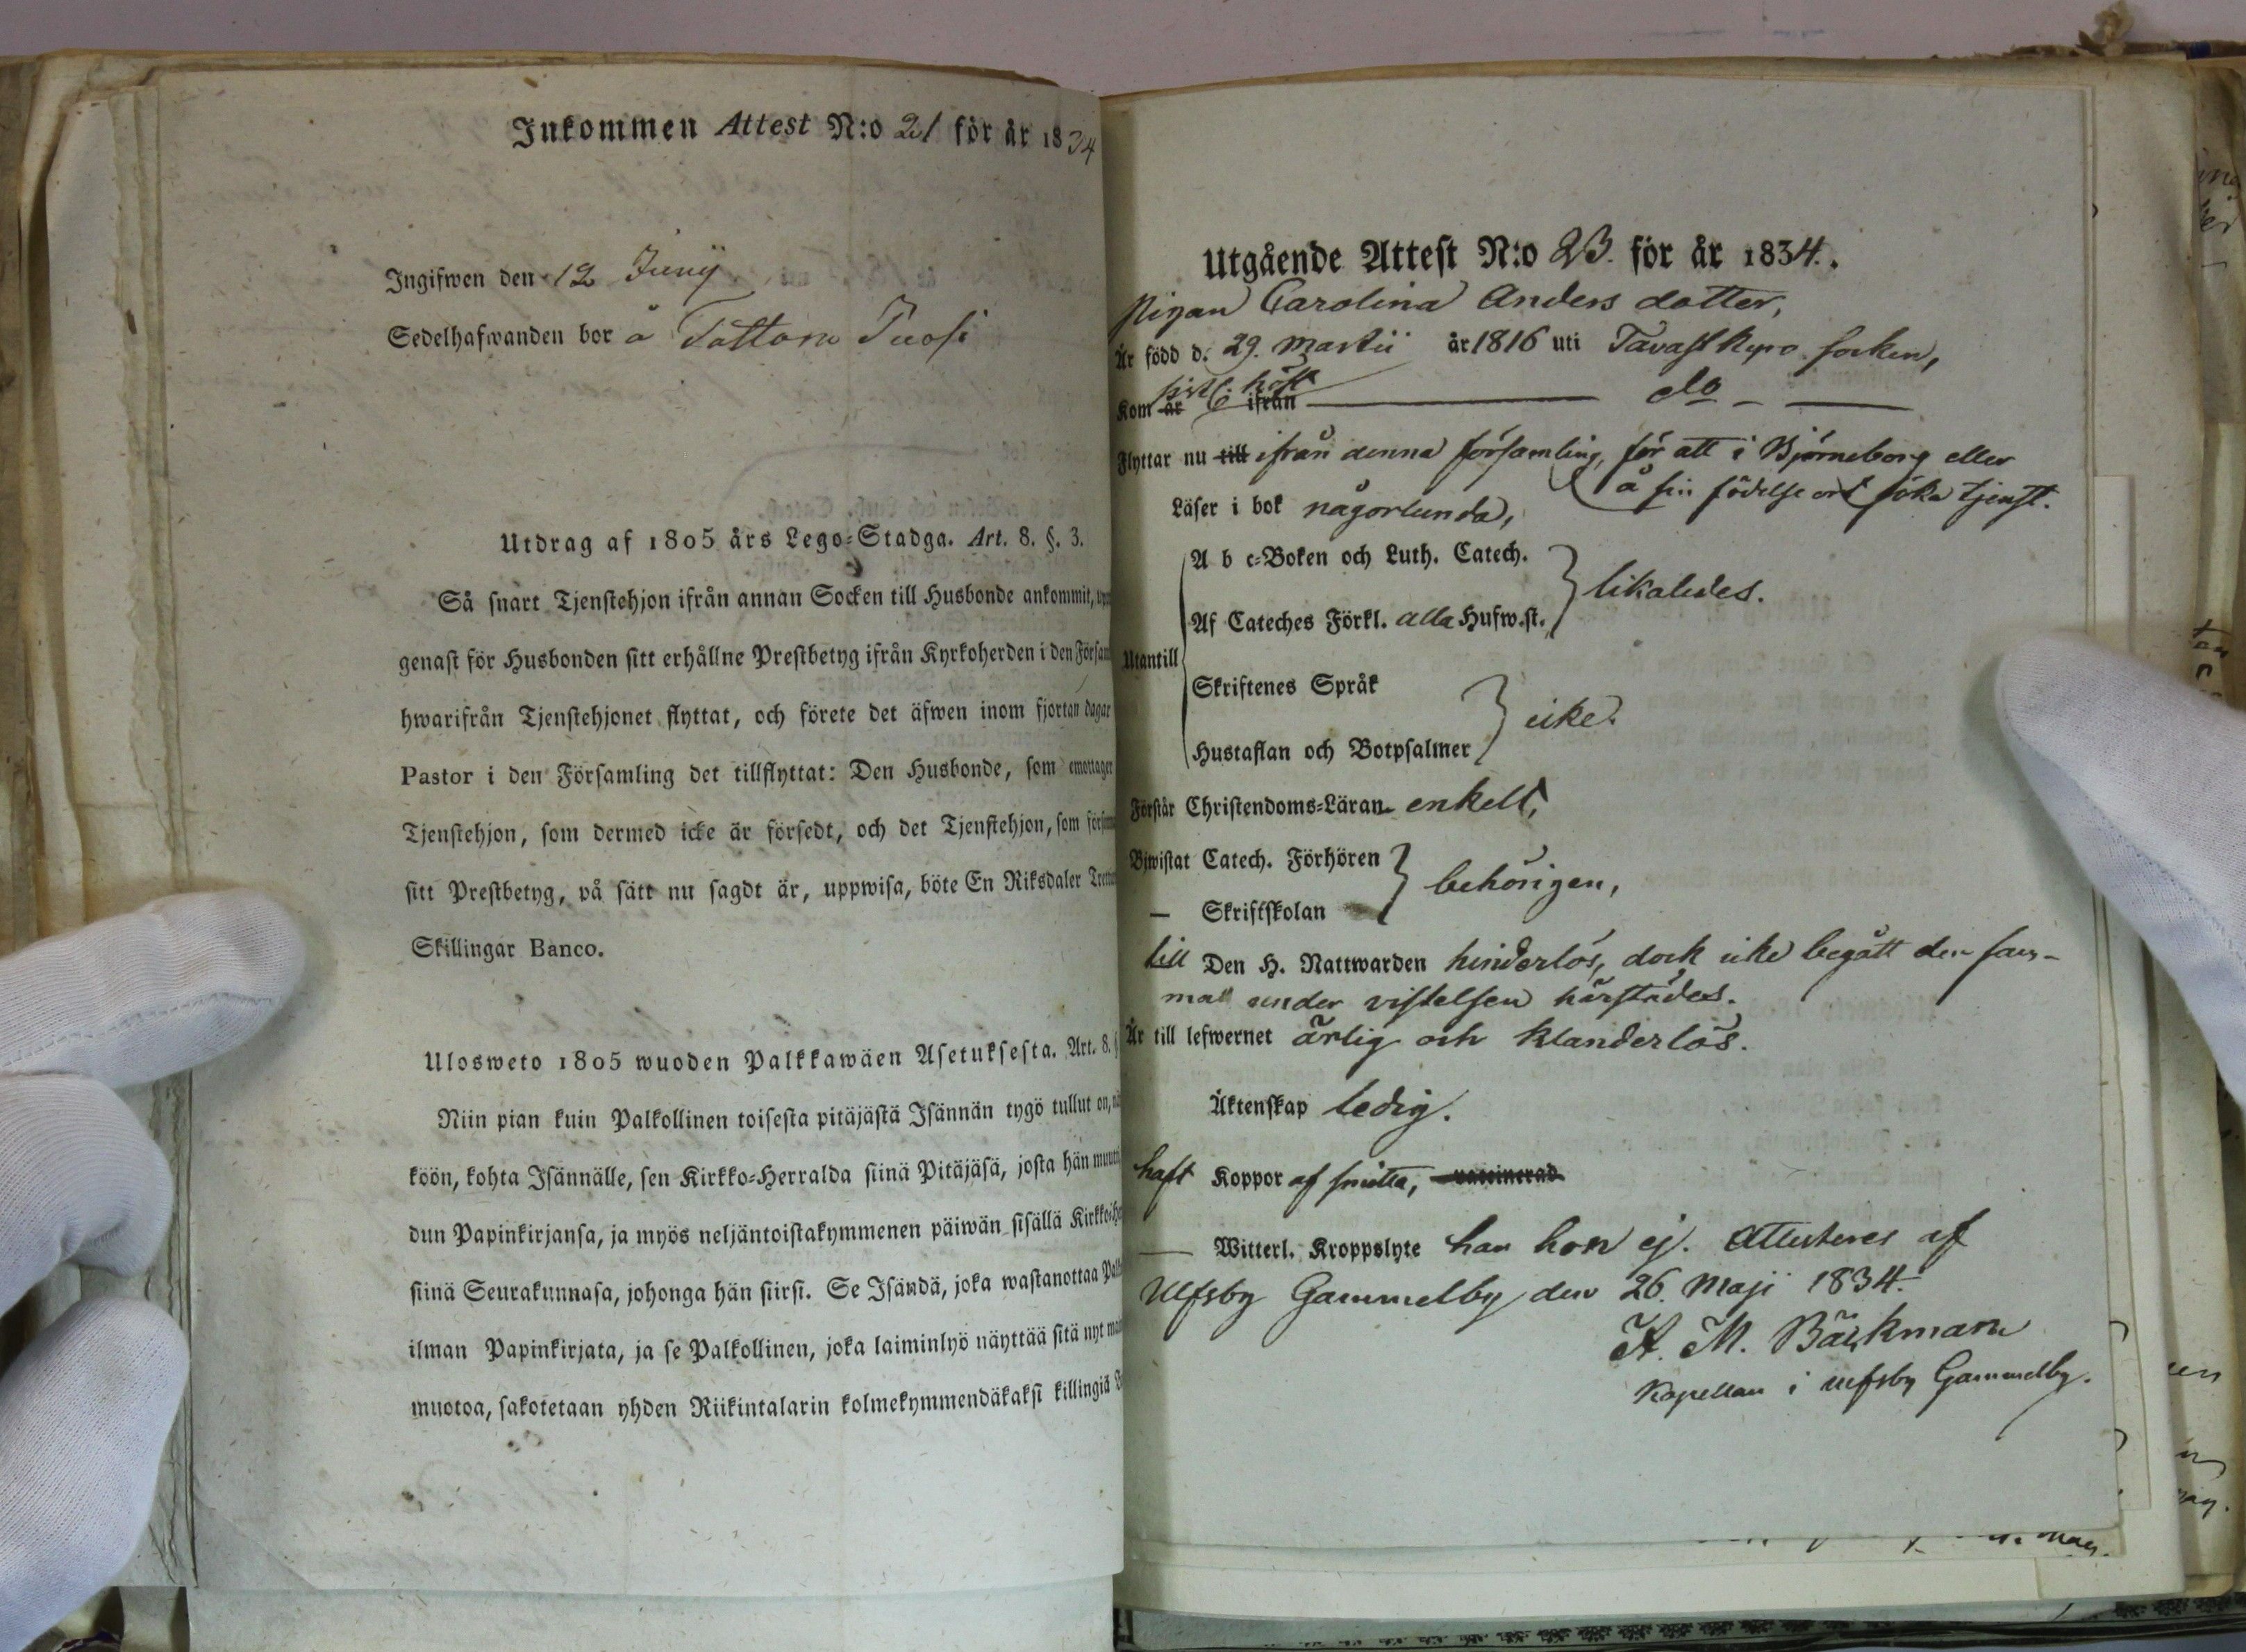 Inkommen Attest N:o 21 för år 1834
Ingifwen den 12 Junÿ
Sedelhafwanden bor å Tåttom Tuosi
Utdrag af 1805 års Lego-Stadga. Art. 8. §. 3.
Så snart Tjenstehjon ifrån annan Socken till Husbonde ankommit,
genast för Husbonden sitt erhållne Prestbetyg ifrån Kyrkoherden i den Försam
hwarifrån Tjenstehjonet flyttat, och förete det äfwen inom fjortan dagar
Pastor i den Församling det tillflyttat: Den Husbonde, som emottager
Tjenstehjon, som dermed icke är försedt, och det Tjenstehjon, som försum
sitt Prestbetyg, på sätt nu sagdt är, uppwisa, böte En Riksdaler Trettio
Skillingar Banco.
Ulosweto 1805 wuoden Palkkawäen Asetuksesta. Art. 8. §
Niin pian kuin Palkollinen toisesta pitäjästä Isännän tygö tullut on, nä
köön, kohta Isännälle, sen Kirkko-Herralda siinä Pitäjäsä, josta hän muutti
dun Papinkirjansa, ja myös neljäntoistakymmenen päiwän sisällä Kirkko-He
siinä Seurakunnasa, johonga hän siirsi. Se Isändä, joka wastanottaa Palk
ilman Papinkirjata, ja se Palkollinen, joka laiminlyö näyttää sitä nyt mai
muotoa, sakotetaan yhden Riikintalarin kolmekymmendäkaksi killingiä B
Utgående Attest N:o 23. för år 1834.
Pigan Carolina Anders dotter,
Är född d. 29. Martii år 1816 uti Tavastkyro socken,
sistl. höst
Kom år ifrån do
Flyttar nu till ifrån denna församling, för att i Björneborg eller
å sin födelse ort söka tjenst.
Läser i bok någorlunda,
A b c-Boken och Luth. Catech.
likaledes.
Af Cateches Förkl. alla Hufw.st.
Utantill
Skriftenes Språk
icke.
Hustaflan och Botpsalmer
Förstår Christendoms-Läran enkelt,
Bjwistat Catech. Förhören
behörigen,
— Skriftskolan
till Den H. Nattwarden hinderlös, dock icke begått den sam-
ma under vistelsen härstädes.
Är till lefwernet ärlig och klanderlös.
Äktenskap ledig.
haft Koppor af smitta, vaccinerad
— Witterl. Kroppslyte har hon ej. Attesteres af
Ulfsby Gammelby den 26. Maji 1834.
A. M. Bäckman
Kapellan i Ulfsby Gammelby.